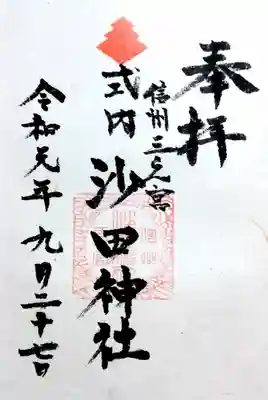 奉拝
信州三之宮
式内 沙田神社
令和元年九月二十七日